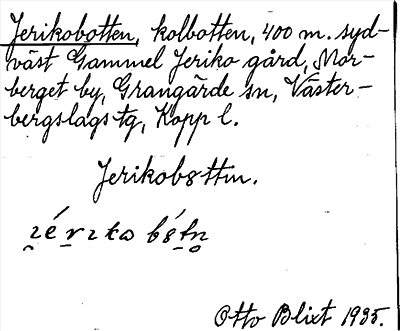 Jerikobotten, kolbotten, 400 m. syd-
väst Gammel Jeriko gård, Mor-
berget by, Grangärde sn, Väster-
bergslags tg, Kopp l.
Jerikobottn.
Otto Blixt 1935.